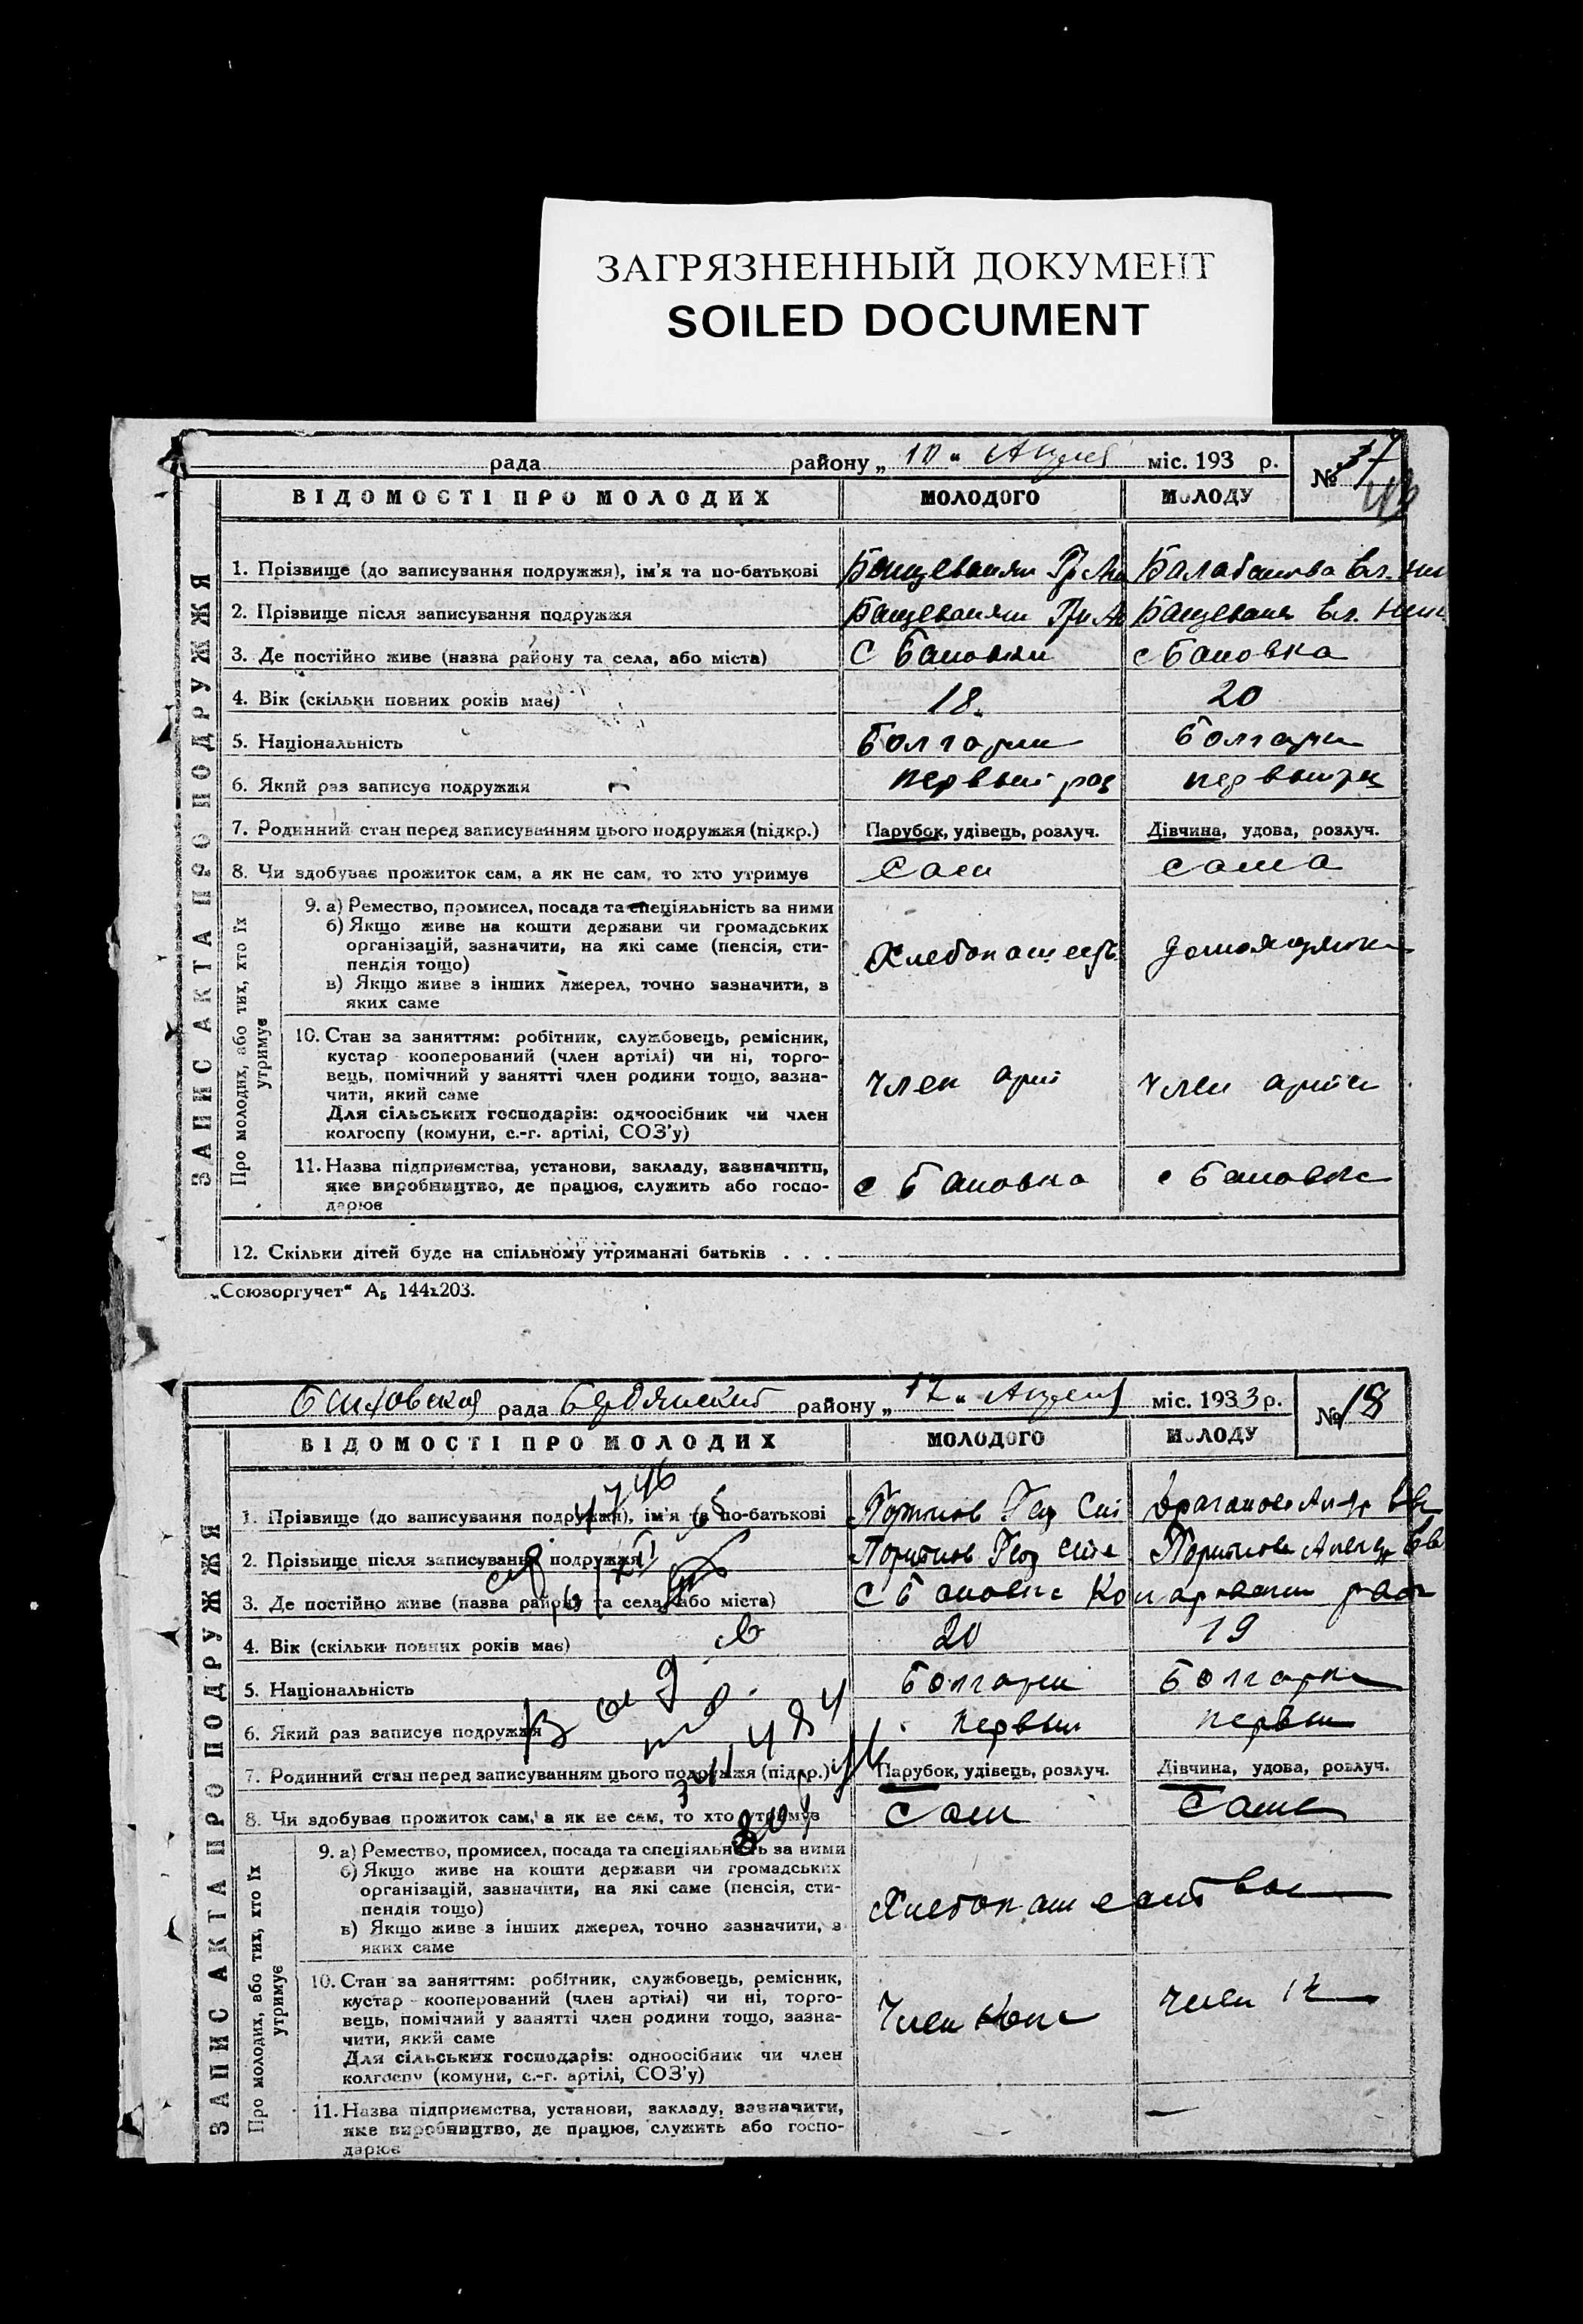 ЗАГРЯЗНЕННЫЙ ДОКУМЕНТ
SOILED DOCUMENT
рада району „10“ Апреля міс. 193 р. №
ВІДОМОСТІ ПРО МОЛОДИХ МОЛОДОГО МОЛОДУ
ЗАПИС АКТА ПРО ПОДРУЖЖЯ
1. Прізвище (до записування подружжя), ім'я та по-батькові Балабанова
2. Прізвище після записування подружжя
3. Де постійно живе (назва району та села, або міста) с Бановки с Бановка
4. Вік (скільки повних років має) 18. 20
5. Національність Болгарин Болгарк
6. Який раз записує подружжя первый раз первый
7. Родинний стан перед записуванням цього подружжя (підкр.) Парубок, удівець, розлуч. Дівчина, удова, розлуч.
8. Чи здобуває прожиток сам, а як не сам, то хто утримує Сам сама
Про молодих, або тих, хто їх утримує
9. а) Ремество, промисел, посада та спеціяльність за ними
б) Якщо живе на кошти держави чи громадських
організацій, зазначити, на які саме (пенсія, сти-
пендія тощо)
в) Якщо живе з інших джерел, точно зазначити, з
яких саме
10. Стан за заняттям: робітник, службовець, ремісник,
кустар кооперований (член артілі) чи ні, торго-
вець, помічний у занятті член родини тощо, зазна-
чити, який саме
Для сільських господарів: одноосібник чи член
колгоспу (комуни, с.-г. артілі, СОЗ'у)
член член
11. Назва підприємства, установи, закладу, зазначити,
яке виробництво, де працює, служить або госпо-
дарює
с Бановка с Бановке
12. Скільки дітей буде на спільному утриманні батьків . . .
„Союзоргучет“ А₅ 144х203.
рада Бердянский району „17“ Апреля міс. 1933 р. № 18
ВІДОМОСТІ ПРО МОЛОДИХ МОЛОДОГО МОЛОДУ
ЗАПИС АКТА ПРО ПОДРУЖЖЯ
1. Прізвище (до записування подружжя), ім'я та по-батькові
2. Прізвище після записування подружжя
3. Де постійно живе (назва району та села, або міста) С Бановке
4. Вік (скільки повних років має) 20 19
5. Національність Болгарин Болгарка
6. Який раз записує подружжя первый первый
7. Родинний стан перед записуванням цього подружжя (підкр.) Парубок, удівець, розлуч. Дівчина, удова, розлуч.
8. Чи здобуває прожиток сам, а як не сам, то хто утримує Сам Сама
Про молодих, або тих, хто їх утримує
9. а) Ремество, промисел, посада та спеціяльність за ними
б) Якщо живе на кошти держави чи громадських
організацій, зазначити, на які саме (пенсія, сти-
пендія тощо)
в) Якщо живе з інших джерел, точно зазначити, з
яких саме
10. Стан за заняттям: робітник, службовець, ремісник,
кустар кооперований (член артілі) чи ні, торго-
вець, помічний у занятті член родини тощо, зазна-
чити, який саме
Для сільських господарів: одноосібник чи член
колгоспу (комуни, с.-г. артілі, СОЗ'у)
Член член
11. Назва підприємства, установи, закладу, зазначити,
яке виробництво, де працює, служить або госпо-
дарює